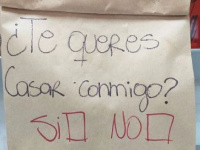 ¿Te queres
Casar conmigo?
Si☐ NO☐